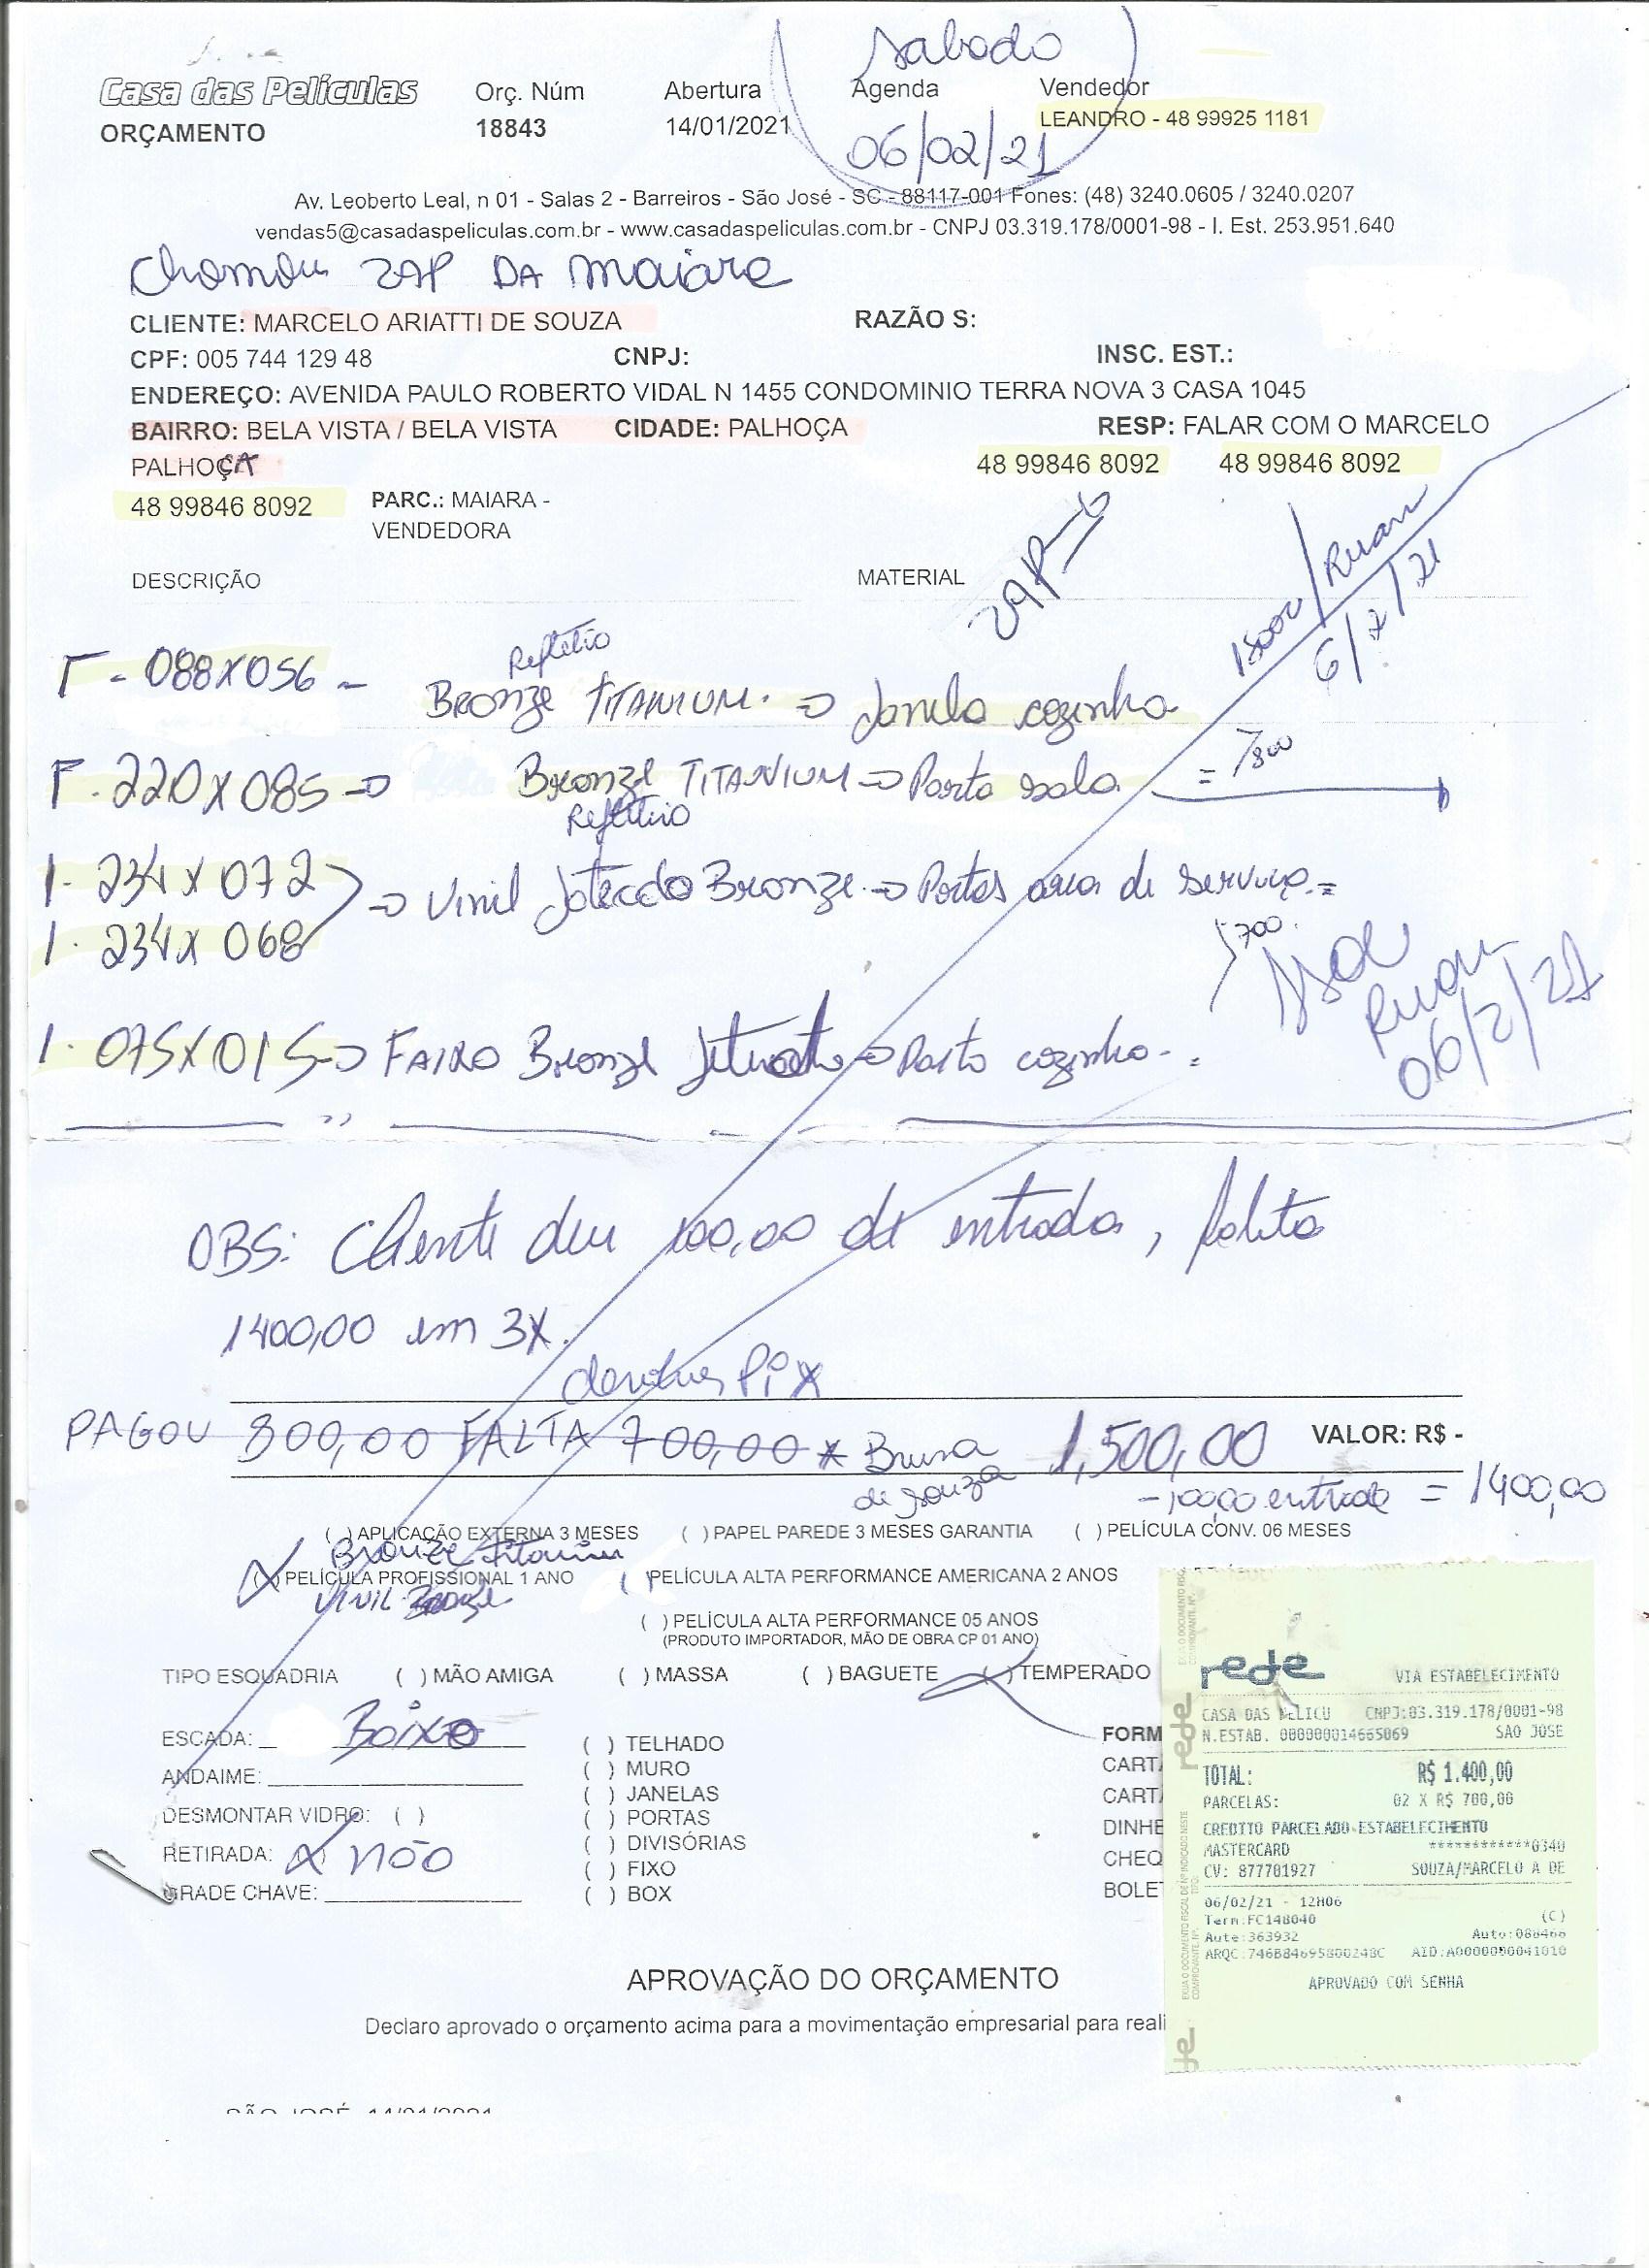 Sabado
Casa das Películas
Orç. Núm
Abertura
Agenda
Vendedor
ORÇAMENTO
18843
14/01/2021
06/02/21
LEANDRO - 48 99925 1181
Av. Leoberto Leal, n 01 - Salas 2 - Barreiros - São José - SC - 88117-001 Fones: (48) 3240.0605 / 3240.0207
vendas5@casadaspeliculas.com.br - www.casadaspeliculas.com.br - CNPJ 03.319.178/0001-98 - I. Est. 253.951.640
Chamou ZAP DA Maiara
CLIENTE: MARCELO ARIATTI DE SOUZA RAZÃO S:
CPF: 005 744 129 48 CNPJ: INSC. EST.:
ENDEREÇO: AVENIDA PAULO ROBERTO VIDAL N 1455 CONDOMINIO TERRA NOVA 3 CASA 1045
BAIRRO: BELA VISTA / BELA VISTA CIDADE: PALHOÇA RESP: FALAR COM O MARCELO
PALHOÇA 48 99846 8092 48 99846 8092
48 99846 8092 PARC.: MAIARA -
VENDEDORA
ZAP
DESCRIÇÃO MATERIAL
Ruan
6/2/21
Refletivo
F - 088X056 - BRONZE TITANIUM. => Janela cozinha
F. 220X085 => Bronze TITANIUM => Porta sala = 800
Refletivo
I - 234X072
=> Vinil Jateado Bronze => Portas area de serviço =
I. 234X068
700
Ruan
06/2/21
I. 075X015 => FAIXO Bronze Jateado => Porta cozinha - =
OBS: Cliente deu 100,00 de entrada, falta
1400,00 em 3X.
PIX
PAGOU 800,00 FALTA 700,00 * Bruna 1,500,00 VALOR: R$ -
de Souza
- 100,00 entrada = 1400,00
( ) APLICAÇÃO EXTERNA 3 MESES ( ) PAPEL PAREDE 3 MESES GARANTIA ( ) PELÍCULA CONV. 06 MESES
Bronze Titanium
(X) PELÍCULA PROFISSIONAL 1 ANO ( ) PELÍCULA ALTA PERFORMANCE AMERICANA 2 ANOS
VINIL Bronze
( ) PELÍCULA ALTA PERFORMANCE 05 ANOS
(PRODUTO IMPORTADOR, MÃO DE OBRA CP 01 ANO)
TIPO ESQUADRIA ( ) MÃO AMIGA ( ) MASSA ( ) BAGUETE ( ) TEMPERADO
ESCADA: Baixo
ANDAIME:
DESMONTAR VIDRO: ( )
RETIRADA: (X) não
GRADE CHAVE:
( ) TELHADO
( ) MURO
( ) JANELAS
( ) PORTAS
( ) DIVISÓRIAS
( ) FIXO
( ) BOX
FORM
CART
CART
DINHE
CHEQ
BOLE
rede VIA ESTABELECIMENTO
CASA DAS PELICU CNPJ:03.319.178/0001-98
N.ESTAB. 000000014665069 SAO JOSE
TOTAL: R$ 1.400,00
PARCELAS: 02 X R$ 700,00
CREDITO PARCELADO ESTABELECIMENTO
MASTERCARD ************0340
CV: 877781927 SOUZA/MARCELO A DE
06/02/21 - 12H06
Term:FC148040 (C)
Aute:363932 Auto:088466
ARQC:746B84695800248C AID:A0000000041010
APROVADO COM SENHA
APROVAÇÃO DO ORÇAMENTO
Declaro aprovado o orçamento acima para a movimentação empresarial para reali
SÃO JOSÉ, 14/01/2021